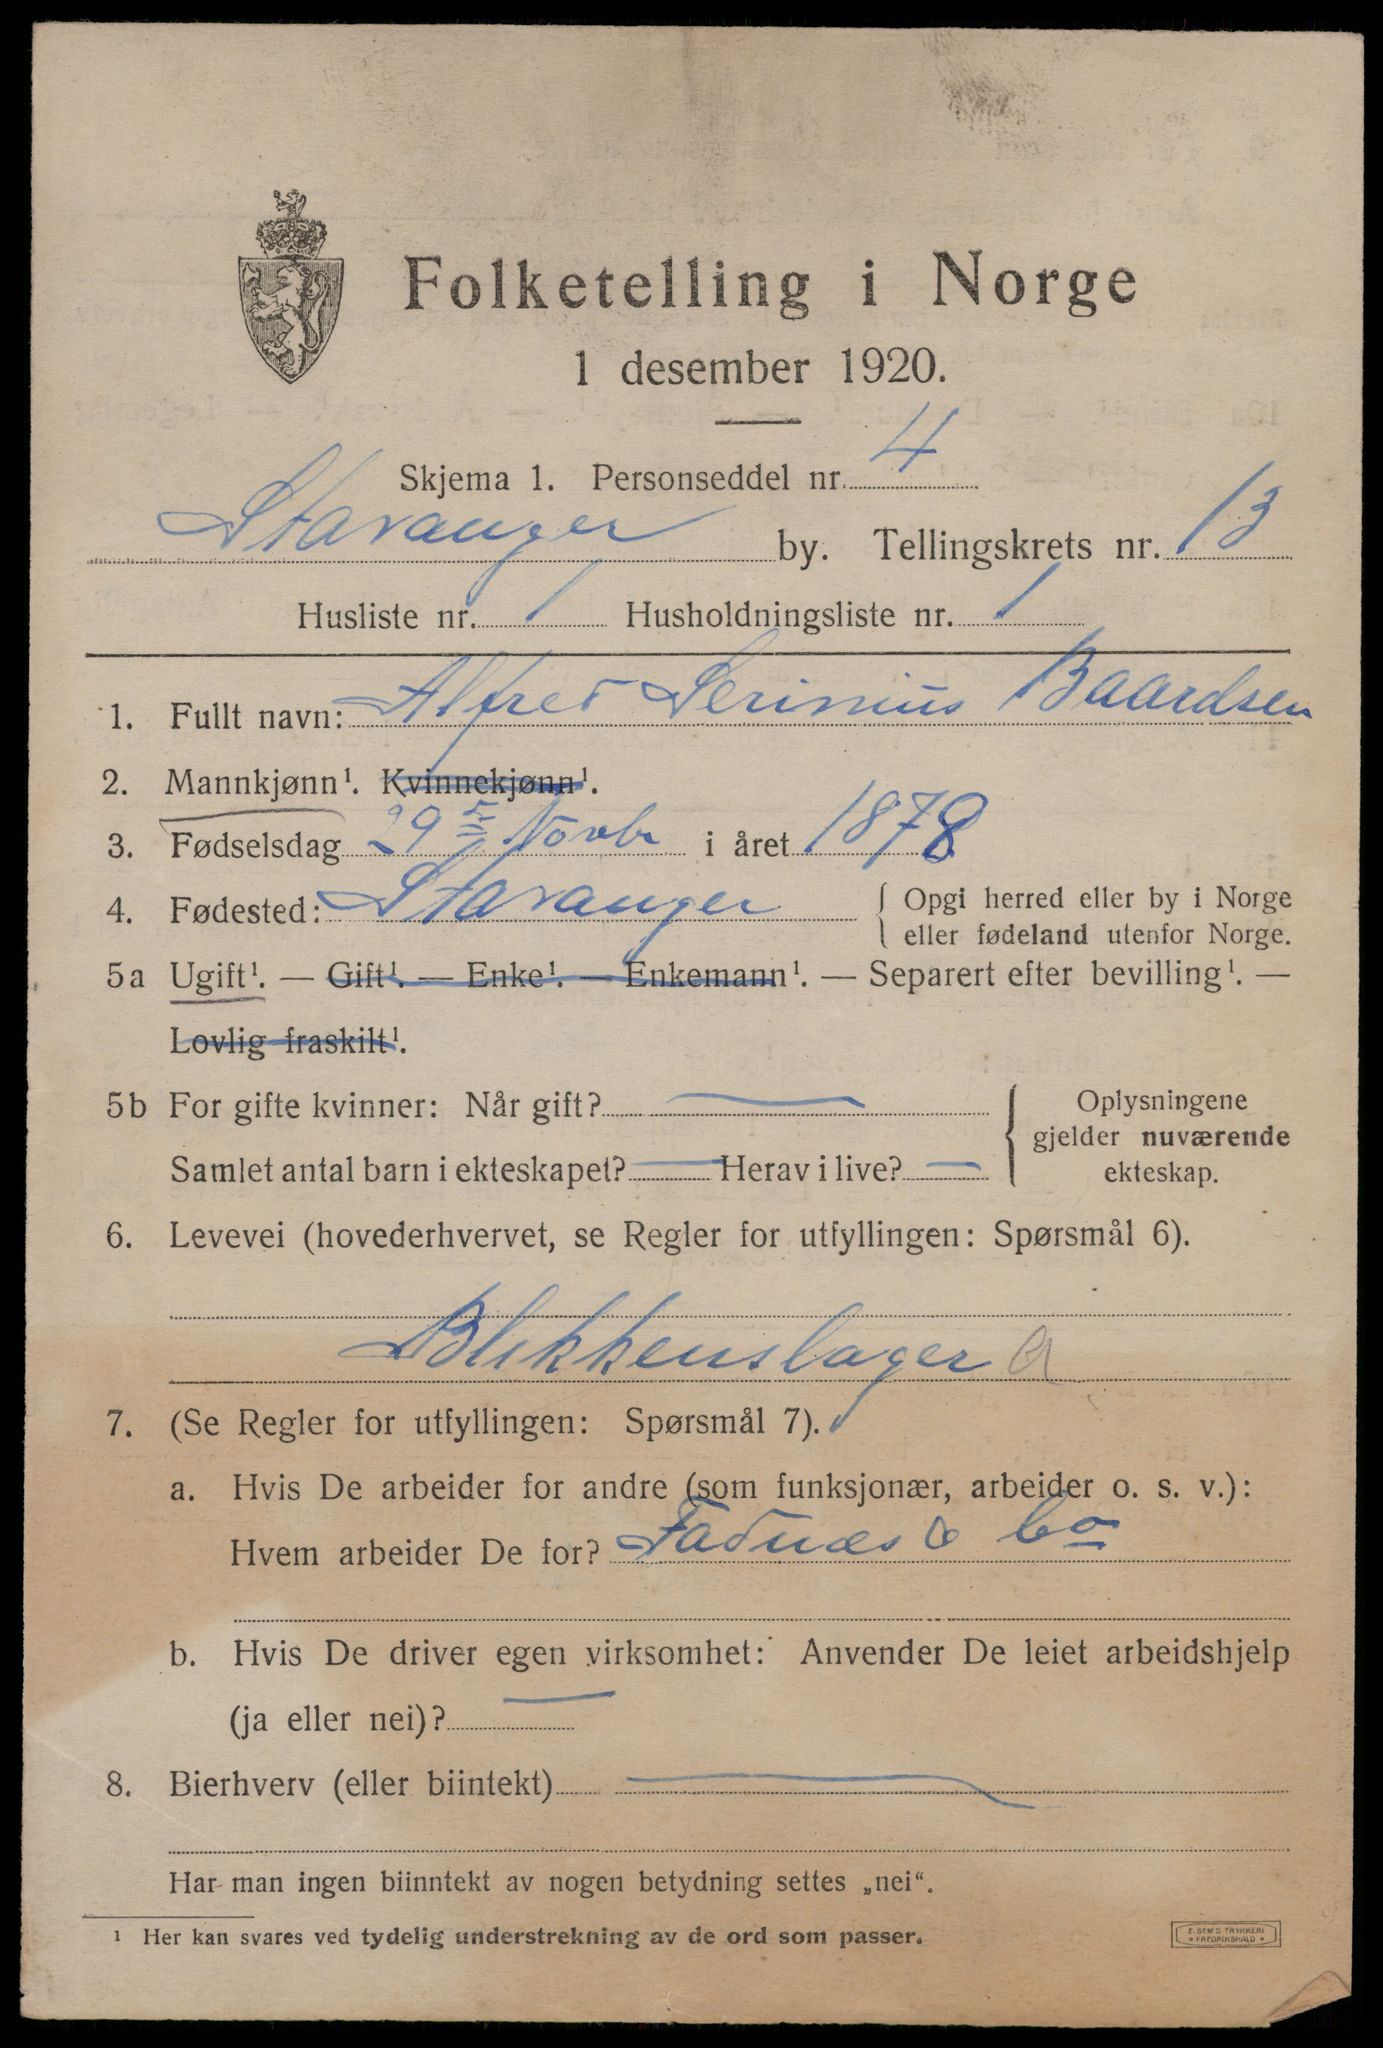 Folketelling i Norge
1 desember 1920.
Skjema 1. Personseddel nr. 4
Stavanger by. Tellingskrets nr. 13
Husliste nr. 1 Husholdningsliste nr. 1
1. Fullt navn: Alfred Serinius Baardsen
2. Mannkjønn¹. Kvinnekjønn¹.
3. Fødselsdag 29 Novbr i året 1878
4. Fødested: Stavanger { Opgi herred eller by i Norge
eller fødeland utenfor Norge.
5a Ugift¹. — Gift¹. — Enke¹. — Enkemann¹. — Separert efter bevilling¹. —
Lovlig fraskilt¹.
5b For gifte kvinner: Når gift? — { Oplysningene
gjelder nuværende
Samlet antal barn i ekteskapet? — Herav i live? — ekteskap.
6. Levevei (hovederhvervet, se Regler for utfyllingen: Spørsmål 6).
Blikkenslager a
7. (Se Regler for utfyllingen: Spørsmål 7).
a. Hvis De arbeider for andre (som funksjonær, arbeider o. s. v.):
Hvem arbeider De for? Fadnæs & Co
b. Hvis De driver egen virksomhet: Anvender De leiet arbeidshjelp
(ja eller nei)? —
8. Bierhverv (eller biintekt) —
Har man ingen biinntekt av nogen betydning settes „nei“.
¹ Her kan svares ved tydelig understrekning av de ord som passer.
E. SEM'S TRYKKERI
* FREDRIKSHALD *